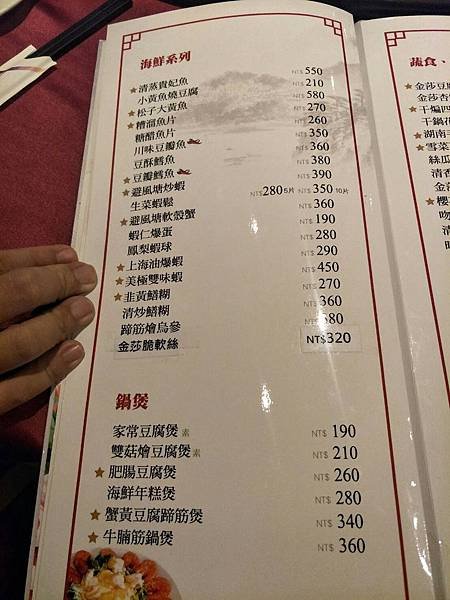 海鮮系列
★清蒸貴妃魚 NT$ 550
小黃魚燒豆腐 NT$ 210
★松子大黃魚 NT$ 580
★糟溜魚片 NT$ 270
糖醋魚片 NT$ 260
川味豆瓣魚 NT$ 350
豆酥鱈魚 NT$ 360
★豆瓣鱈魚 NT$ 380
★避風塘炒蝦 NT$ 390
生菜蝦鬆 NT$280 5片 NT$ 350 10片
★避風塘軟殼蟹 NT$ 360
蝦仁爆蛋 NT$ 190
鳳梨蝦球 NT$ 280
★上海油爆蝦 NT$ 290
★美極雙味蝦 NT$ 450
★韭黃鱔糊 NT$ 270
清炒鱔糊 NT$ 360
蹄筋燴烏參 NT$ 380
金莎脆軟絲 NT$320
鍋煲
家常豆腐煲 素 NT$ 190
雙菇燴豆腐煲 素 NT$ 210
★肥腸豆腐煲 NT$ 260
海鮮年糕煲 NT$ 280
★蟹黃豆腐蹄筋煲 NT$ 340
★牛腩筋鍋煲 NT$ 360
蔬食・
★金莎豆
金莎杏
★干煸四
干鍋花
★湖南
★雪菜
絲瓜
清香
金莎
★櫻
吻
清